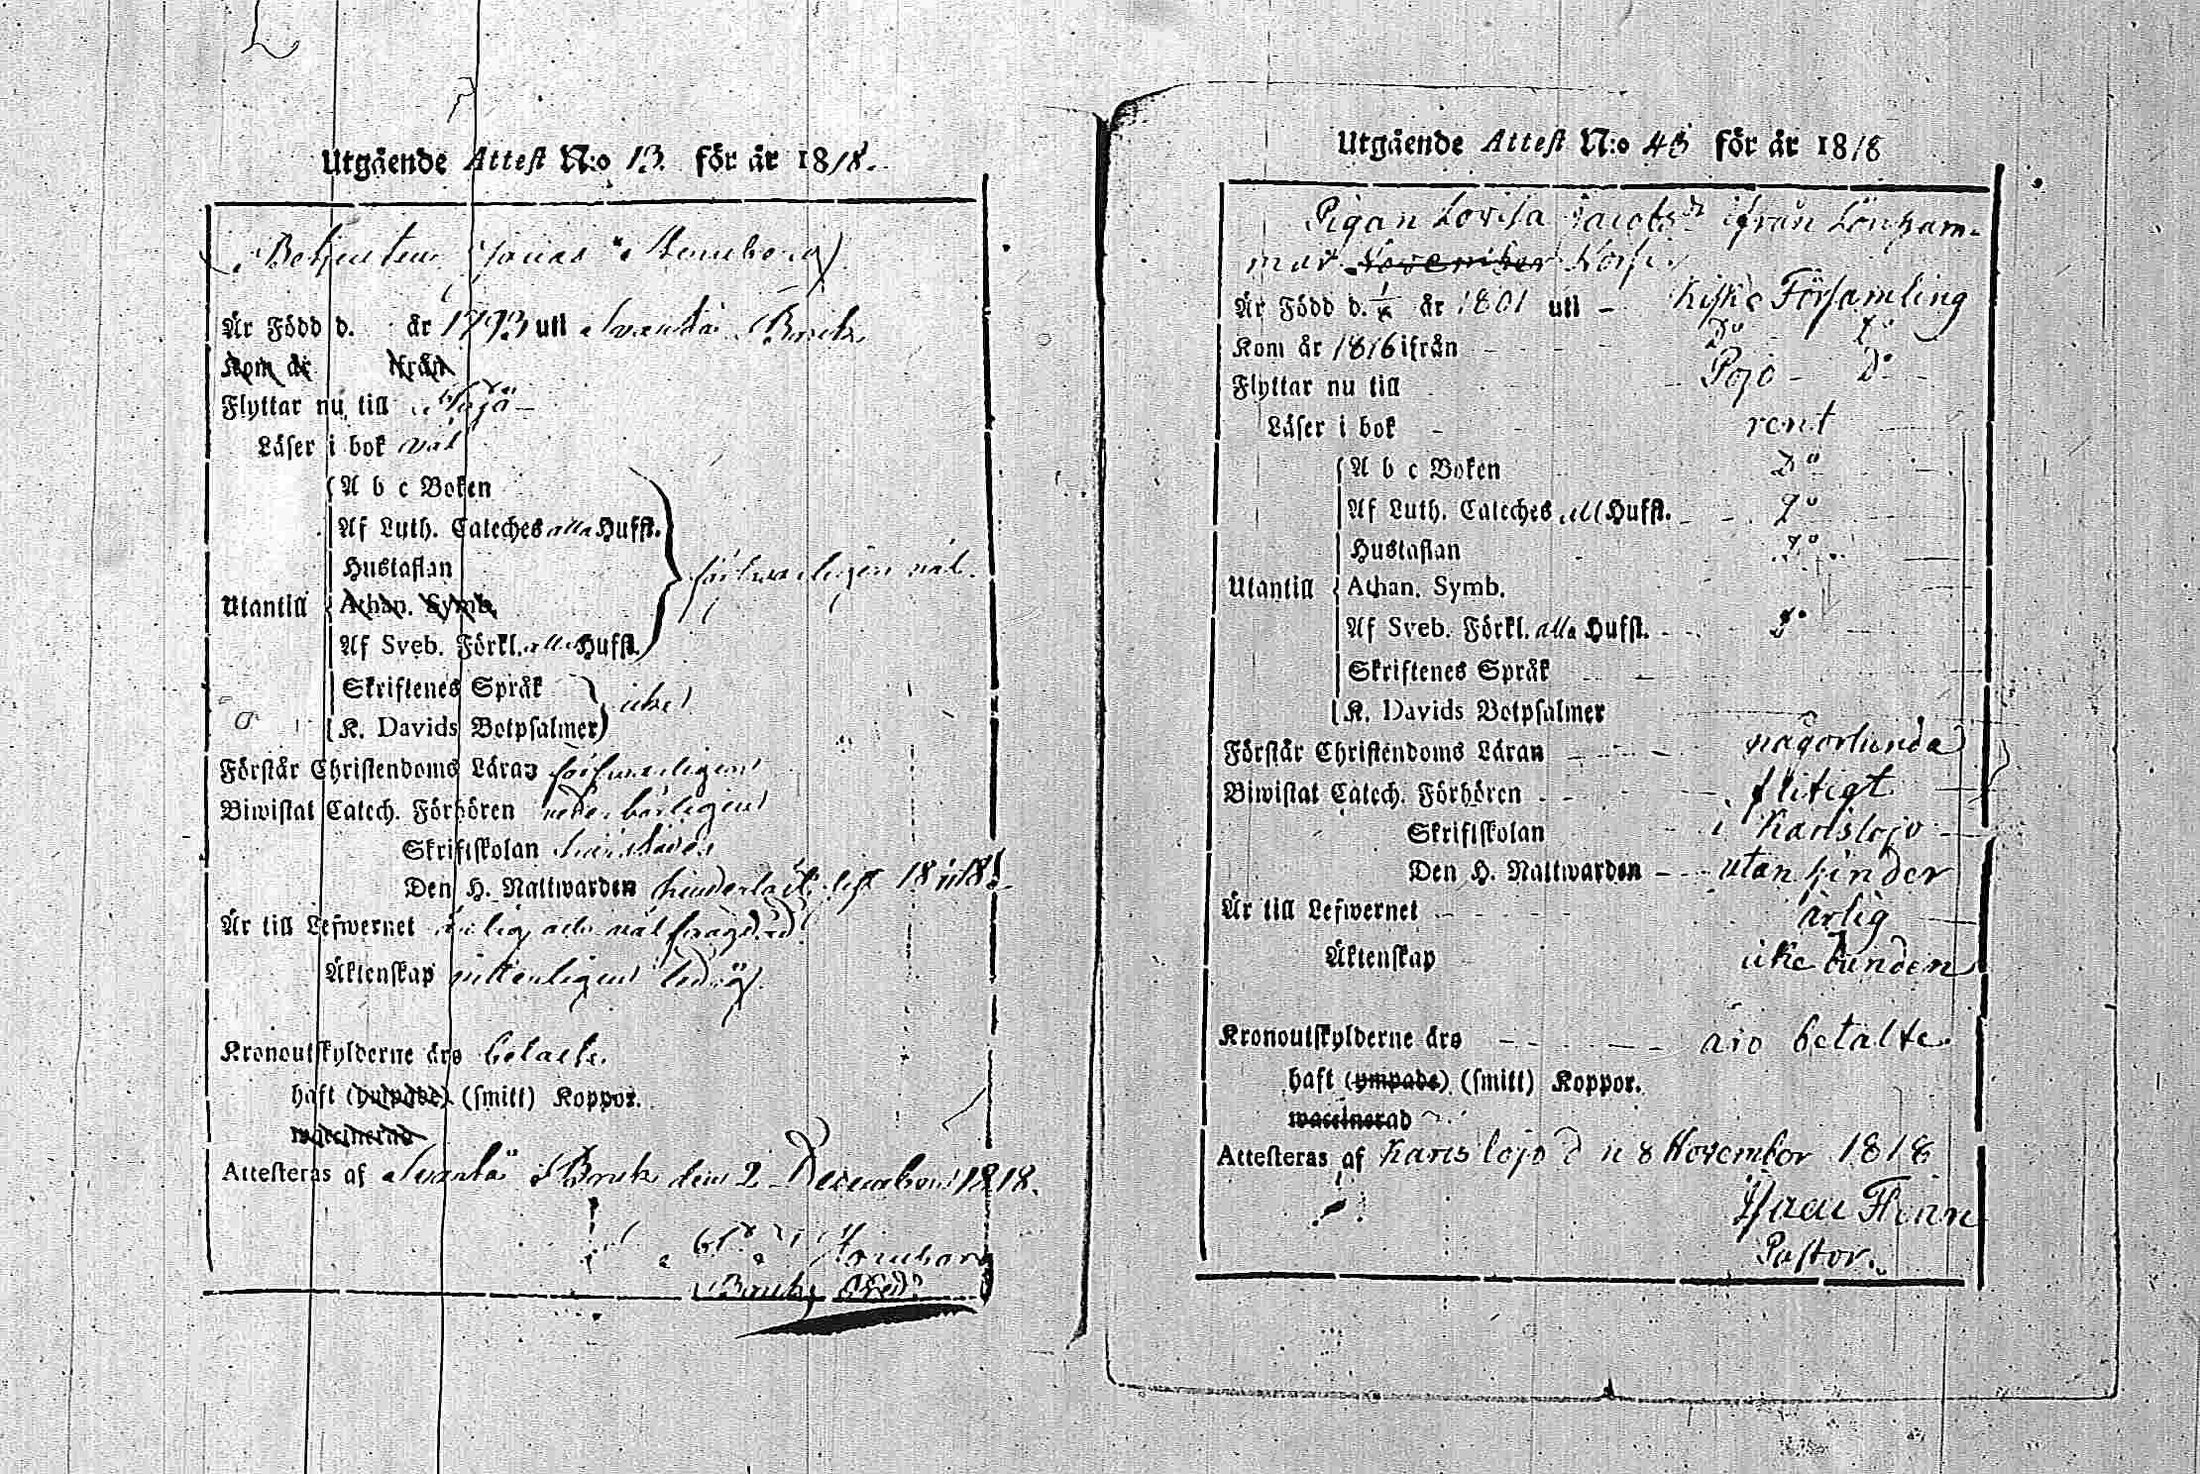 Utgående Attest N:o 13. för år 1818.
Betjenten Jonas
Är Född d. år 1793 uti Svartå Bruk
Kom år ifrån
Flyttar nu till Pojo
Läser i bok väl
A b c Boken
Af Luth. Cateches alla Hufst.
Hustaflan
försvarligen väl.
Utantill
Athan. Symb.
Af Sveb. Förkl. alla Hufst.
Skriftenes Språk
icke
K. Davids Botpsalmer
Förstår Christendoms Läran försvarligen
Biwistat Catech. Förhören vederbörligen
Skriftskolan härstädes
Den H. Nattwarden sist 18
Är till Lefwernet ärlig och väl frägdad
Äktenskap vitterligen ledig
Kronoutskylderne äro betalte.
haft (ympade) (smitt) Koppor.
waccinerad
Attesteras af Svartå Bruk den 2 December 1818.
Bruks Pred.
Utgående Attest N:o 48 för år 1818
Pigan Lovisa Jacobsdr ifrån Lönham-
mar November
Är Född d. år 1801 uti - Kisko Församling
Kom år 1816 ifrån Do Do
Flyttar nu till Pojo - Do
Läser i bok rent
A b c Boken Do
Af Luth. Cateches all Hufst. Do
Hustaflan Do
Utantill
Athan. Symb.
Af Sveb. Förkl. alla Hufst. Do
Skriftenes Språk
K. Davids Botpsalmer
Förstår Christendoms Läran någorlunda
Biwistat Catech. Förhören flitigt
Skriftskolan i Karislojo
Den H. Nattwarden utan hinder
Är till Lefwernet ärlig
Äktenskap icke bunden
Kronoutskylderne äro äro betalte.
haft (ympade) (smitt) Koppor.
waccinerad
Attesteras af Karislojo d n 8 November 1818
Pastor.